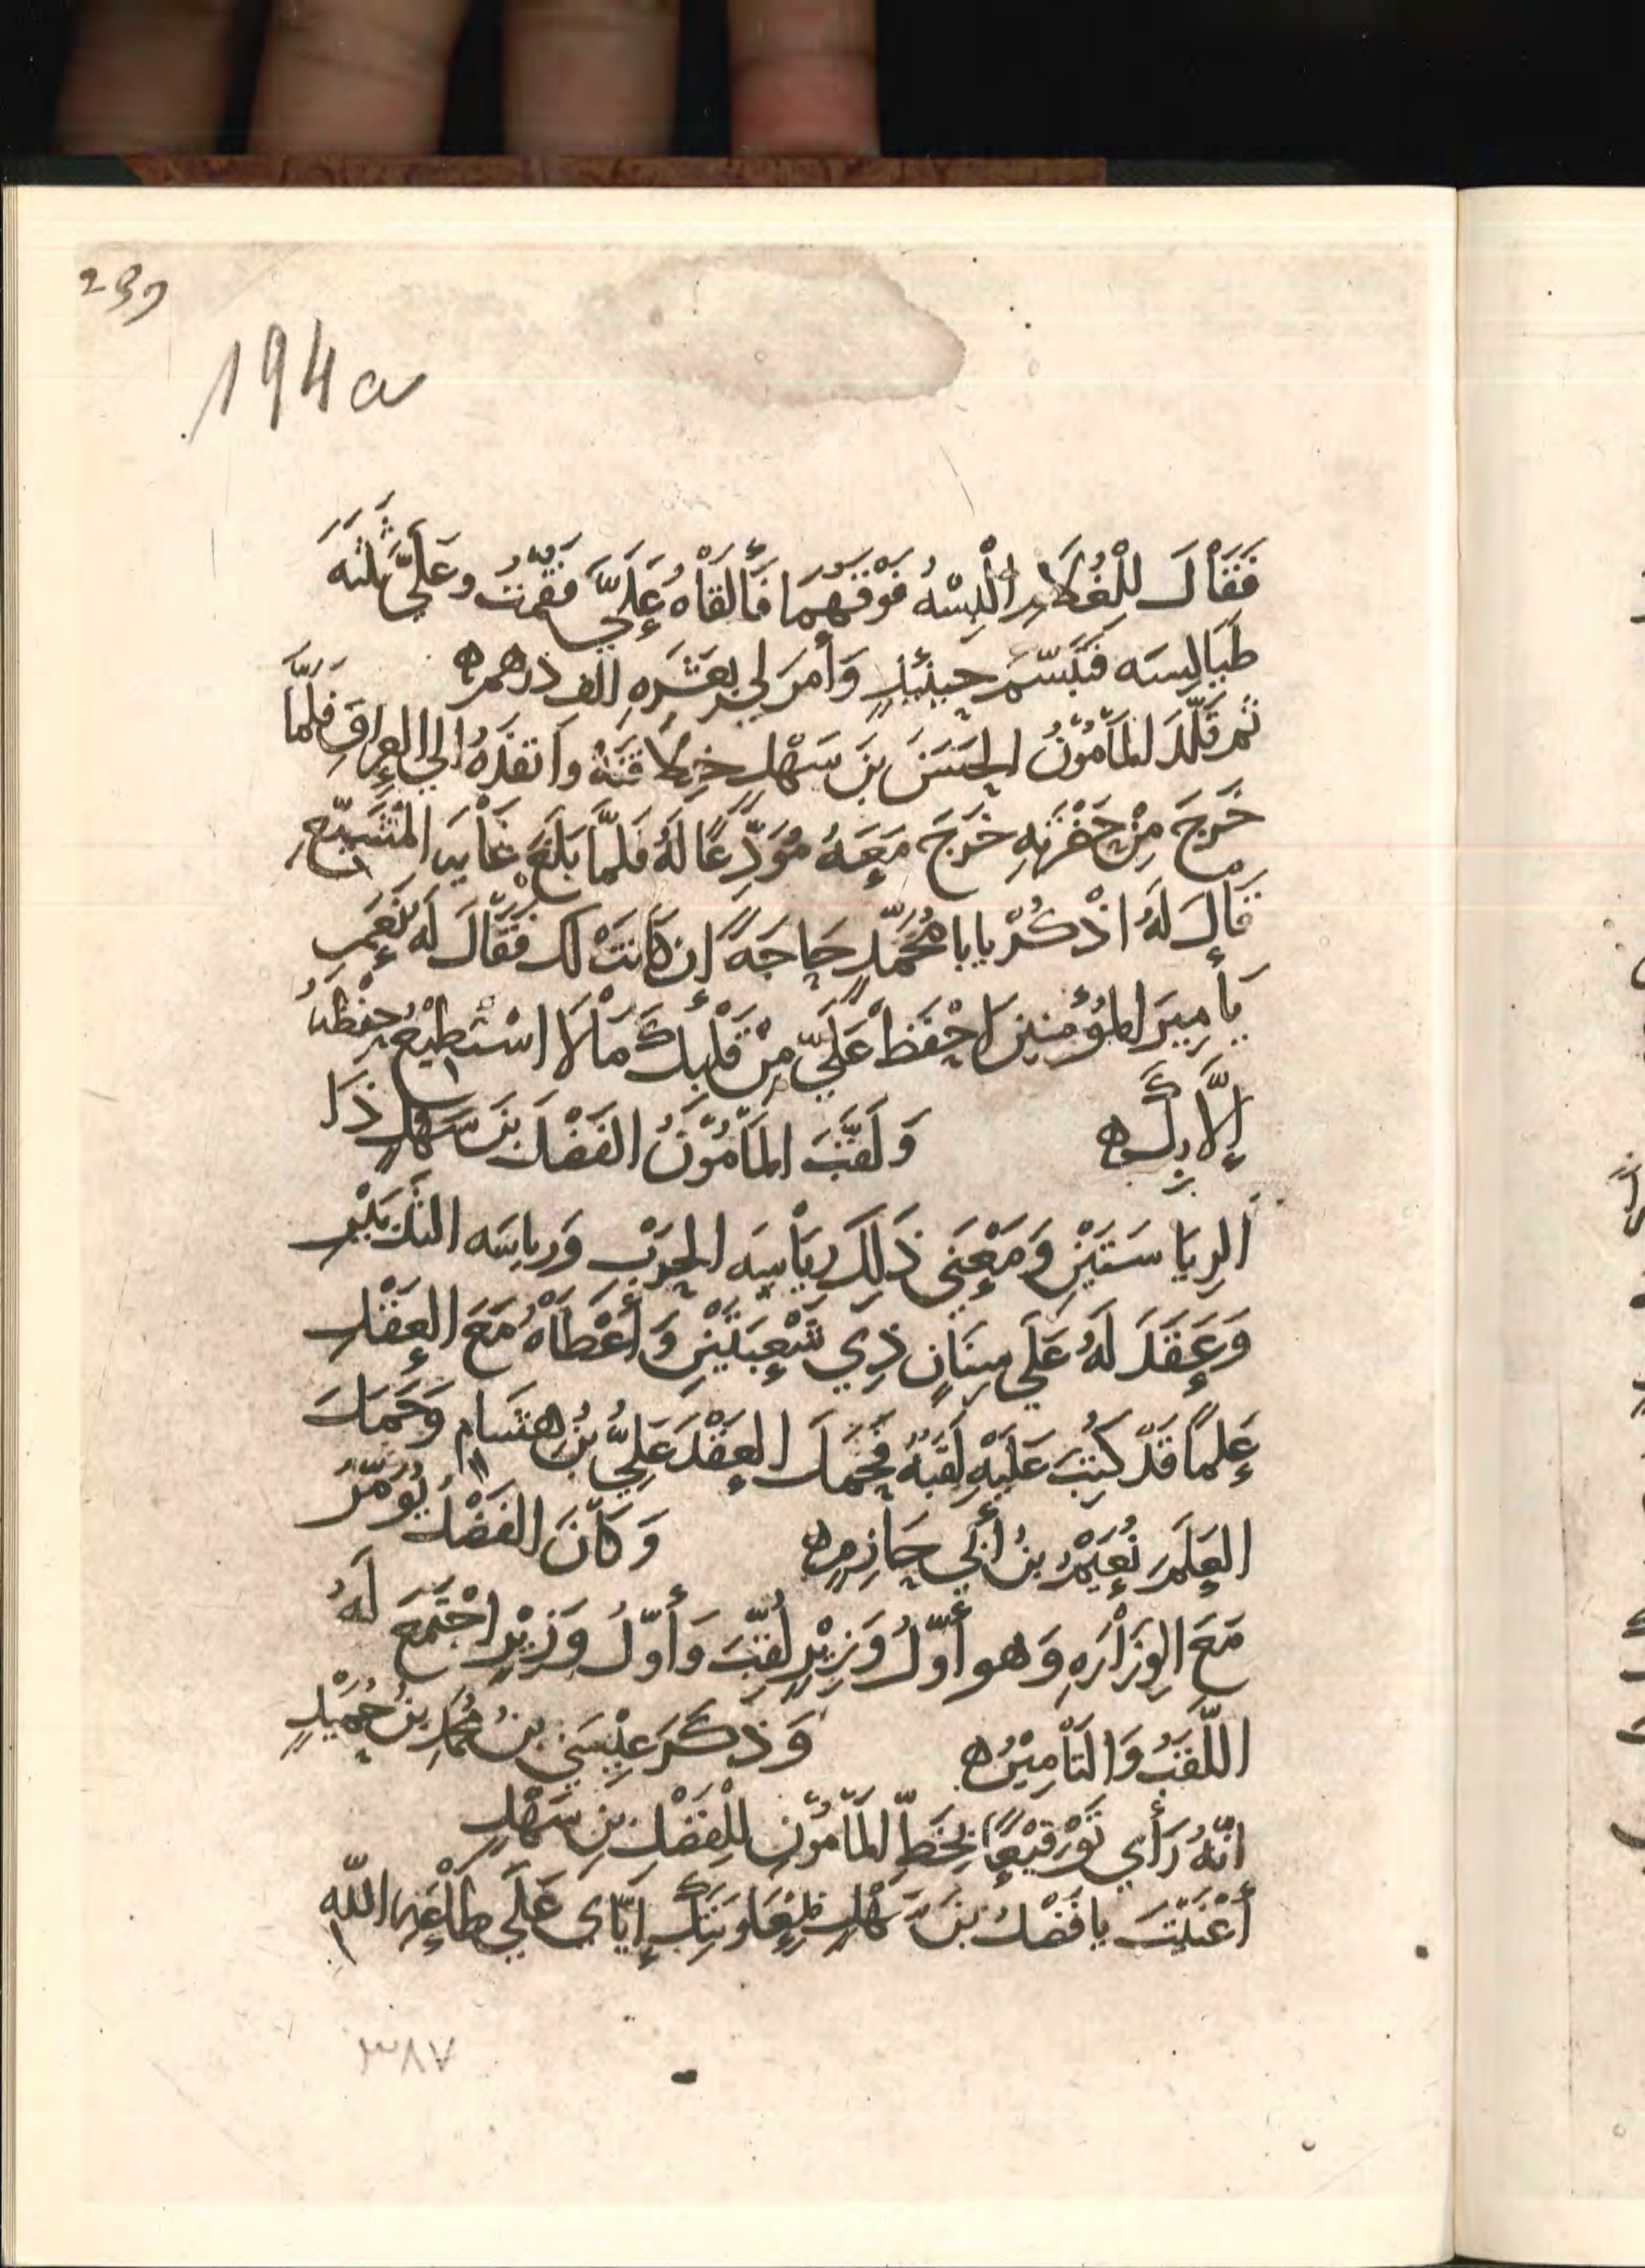 239
194a
فَقَالَ لِلْغُلَامِ الْبِسْهُ فَوْقَهُمَا فَأَلْقَاهُ عَلَيَّ فَقُمْتُ وَعَلَيَّ ثَلَثَة
طَيَالِسَه فَتَبَسَّمَ حِينَئِذٍ وَأَمَرَ لِي بِعَشَرَهِ الف دِرْهَمٍ ه
ثم قَلَّدَ المَأمُوْنُ الحَسَنَ بنَ سَهْلٍ خِلَافَتَهُ وَانفَذَهُ الي العِرَاقِ فَلَمَّا
خَرَجَ مِنْ حَضْرَتِهِ خَرَجَ مَعَهُ مُوَدِّعًا لَهُ فَلَمَّا بَلَغَ غَايَه المُشَيِّعِ
قَالَ لَهُ اذْكُرْ يابا مُحَمَّدٍ حَاجَةً إِن كَانَتْ لَك فَقَالَ لَه نَعَم
يَأَمِيرَ المُؤْمِنِينَ احْفَظْ عَلَيَّ مِنْ قَلْبِكَ مَالَا اسْتَطِيْعُ حِفْظَهُ
إِلَّا بِكَ ه وَلَقَّبَ المَأمُوْنُ الفَضْلَ بنَ سَهْلٍ ذَا
الرِيَاسَتَيْنِ وَمَعْنَي ذَلِكَ رِيَاسَه الحَرْبِ وَرِياسَه التَّدْبِيْرِ
وَعَقَدَ لَهُ عَلَي سِنَانٍ ذِي شُعْبَتَيْنِ وَأَعْطَاهُ مَعَ العَقْدِ
عَلَمًا قَدْ كَتَبَ عَلَيْهِ لَقَبَهُ فَحَمَلَ العَقْدَ عَلِيُّ بْنُ هشَام وَحَمَلَ
العَلَمَ نُعَيْمُ بنُ أَبِي حَازِمٍ ه وَكَانَ الفَضْلُ يُؤَمَّرُ
مَعَ الوِزَارَهِ وَهو أَوَّلُ وَزِيْرٍ لُقِّبَ وَأَوَّلُ وَزِيْرٍ اجْتَمَعَ لَهُ
اللَّقَبُ وَالتَأمِيْرُ ه وَذَكَرَ عِيْسَي بنُ مُحَمَّدِ بنُ حُمَيْدٍ
انَّهُ رَأَي تَوْقِيْعًا بِخَطِّ المَأمُوْنِ لِلْفَضْلِ بنِ سَهْلٍ
أَغْنَيْتَ يا فَضْلُ بنَ سَهْلٍ بِمُعَاوَنَتِكَ إِيَّاي عَلَي طَاعَهِ اللّه
٣٨٧